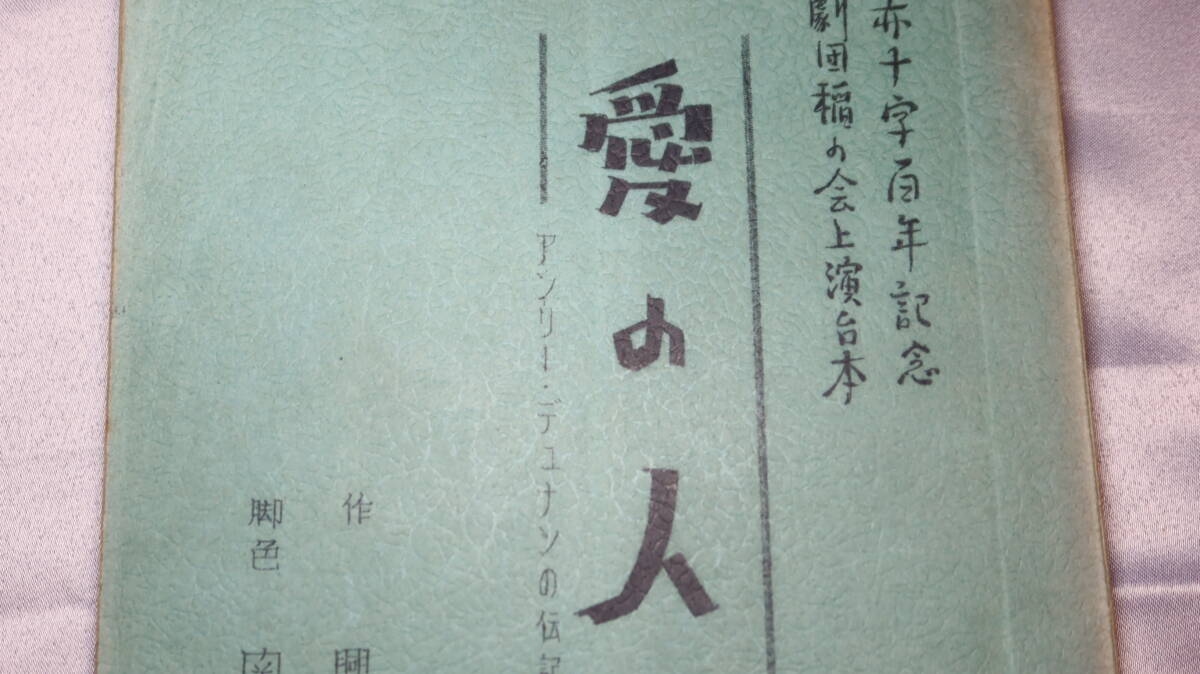 赤十字百年記念
劇団稲の会上演台本
愛の人
アンリー・デュナンの伝記
作 興
脚色